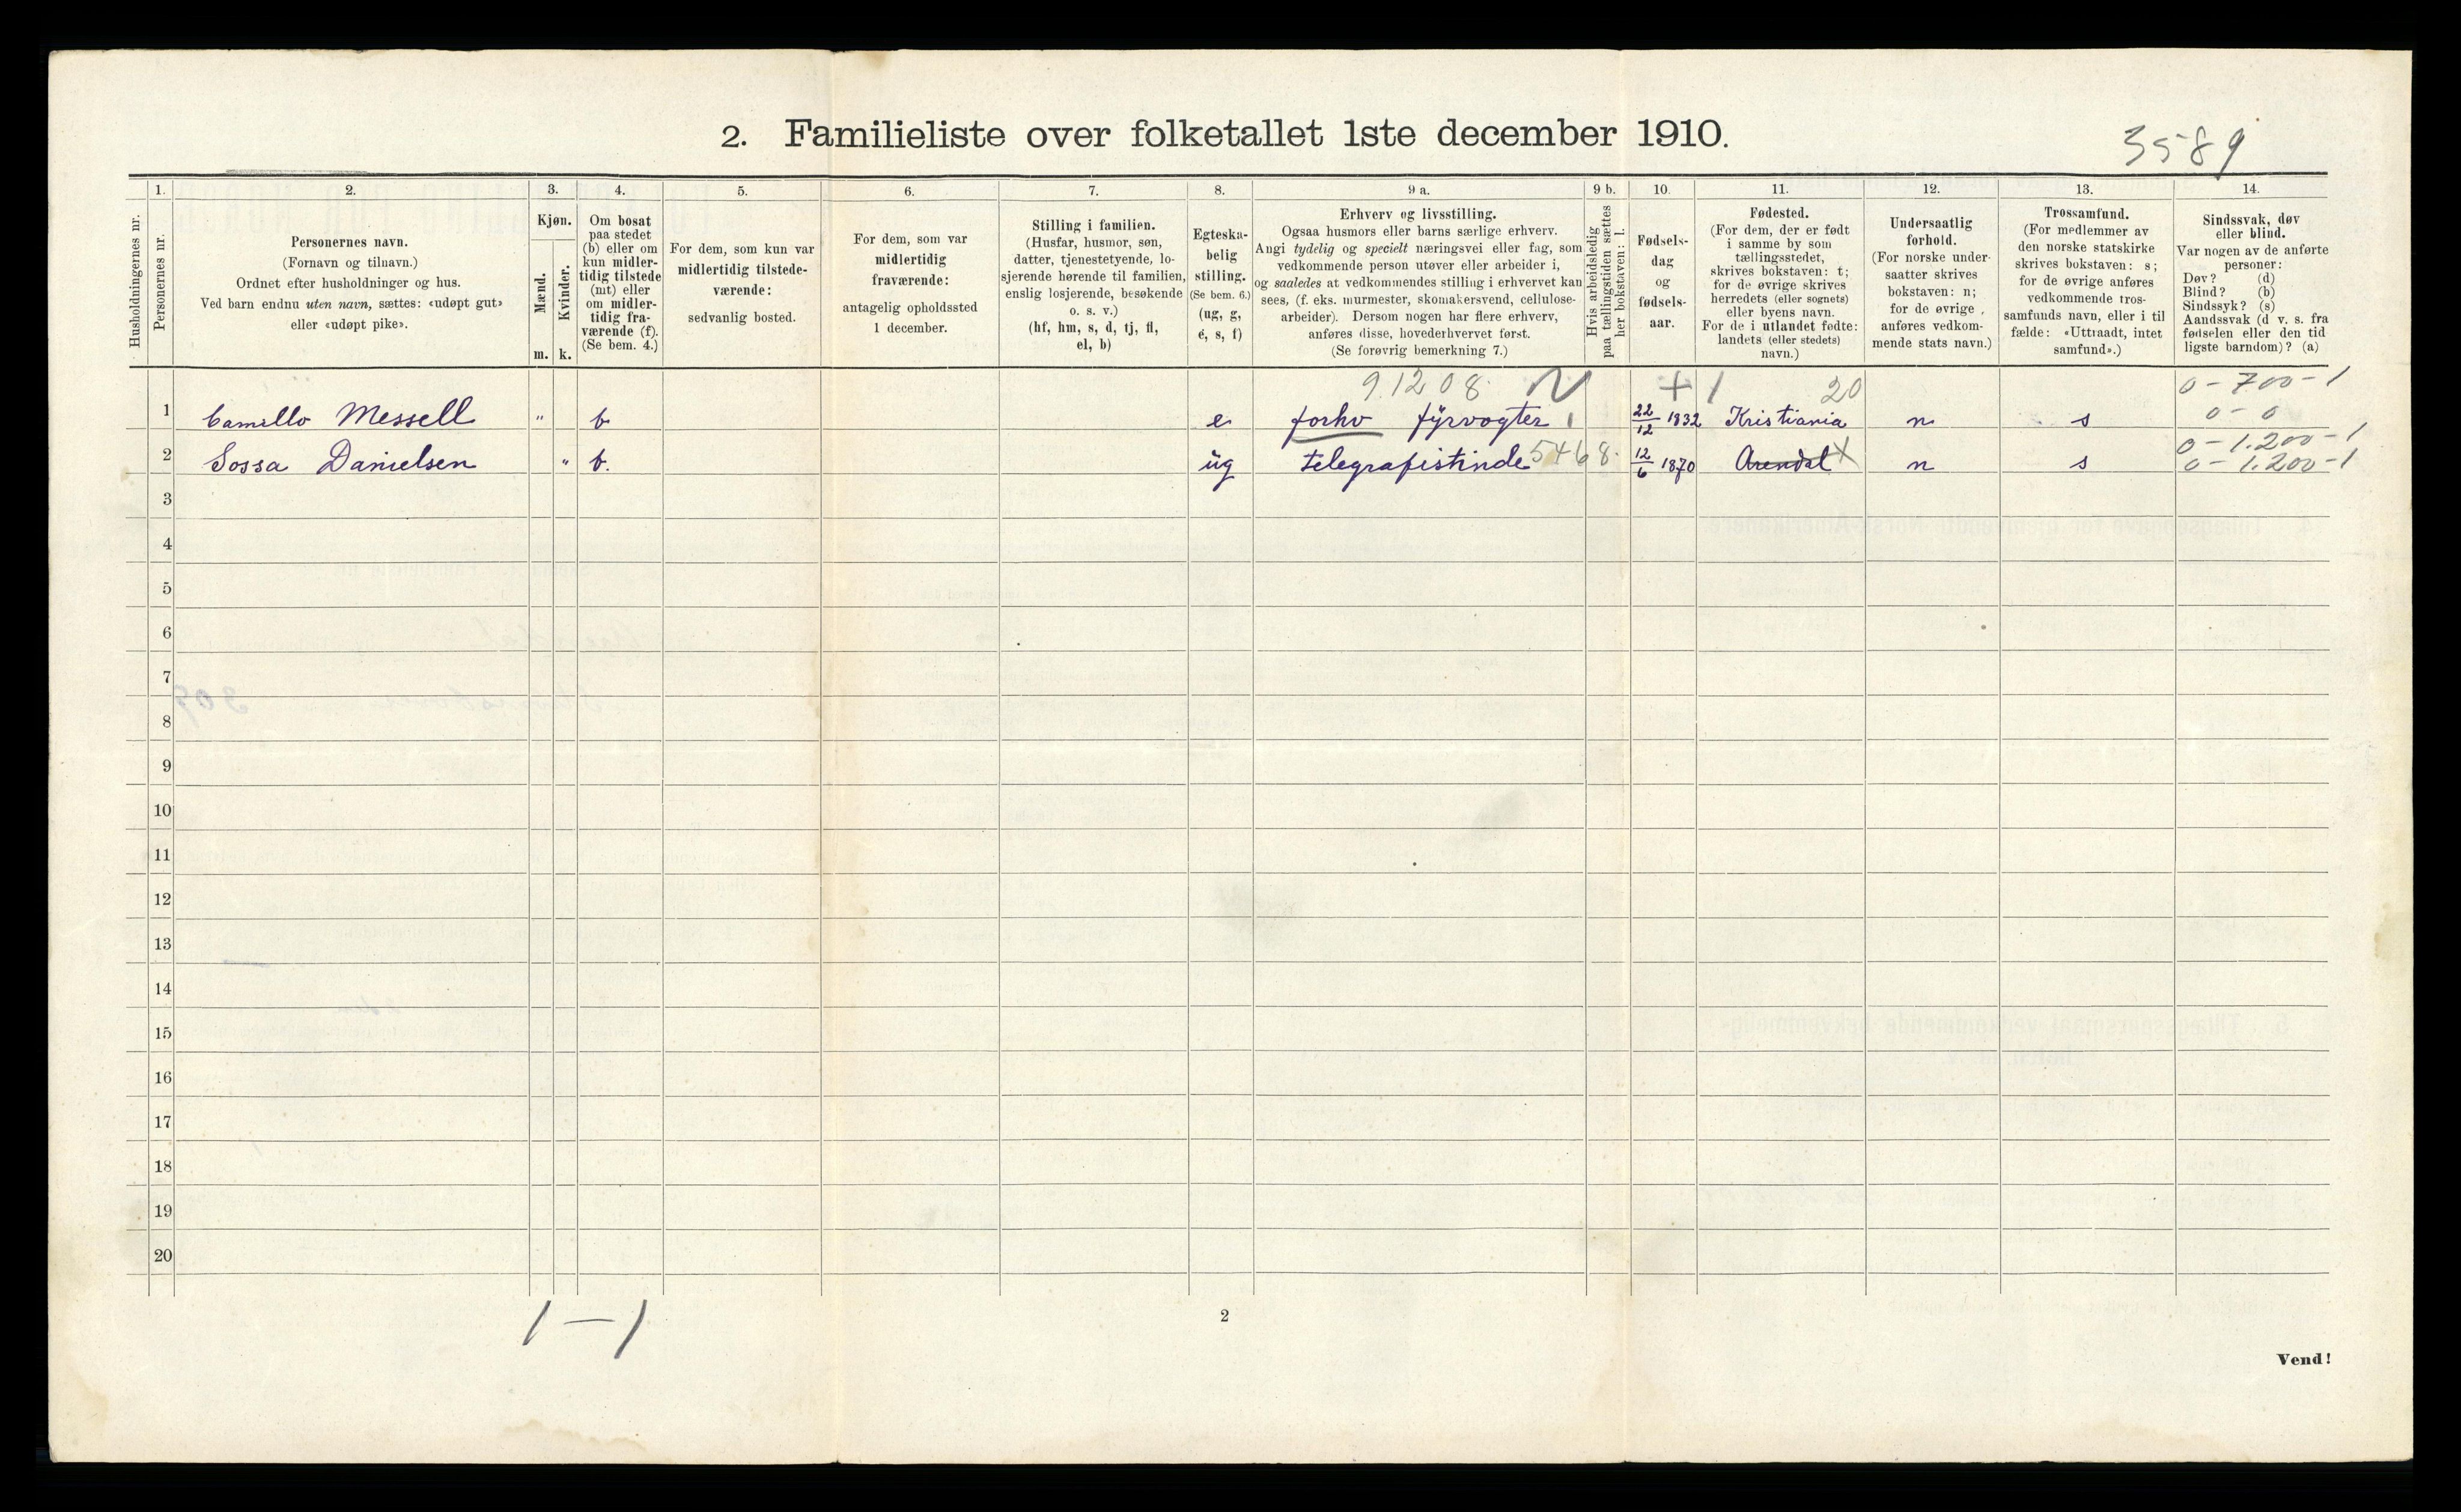 2. Familieliste over folketallet 1ste december 1910.
3589
1. 2. 3. 4. 5. 6. 7. 8. 9 a. 9 b. 10. 11. 12. 13. 14.
Husholdningernes nr.
Personernes nr.
Personernes navn.
(Fornavn og tilnavn.)
Ordnet efter husholdninger og hus.
Ved barn endnu uten navn, sættes: «udøpt gut»
eller «udøpt pike».
Kjøn.
Mænd.
m.
Kvinder.
k.
Om bosat
paa stedet
(b) eller om
kun midler-
tidig tilstede
(mt) eller
om midler-
tidig fra-
værende (f).
(Se bem. 4.)
For dem, som kun var
midlertidig tilstede-
værende:
sedvanlig bosted.
For dem, som var
midlertidig
fraværende:
antagelig opholdssted
1 december.
Stilling i familien.
(Husfar, husmor, søn,
datter, tjenestetyende, lo-
sjerende hørende til familien,
enslig losjerende, besøkende
o. s. v.)
(hf, hm, s, d, tj, fl,
el, b)
Egteska-
belig
stilling.
(Se bem. 6.)
(ug, g,
e, s, f)
Erhverv og livsstilling.
Ogsaa husmors eller barns særlige erhverv.
Angi tydelig og specielt næringsvei eller fag, som
vedkommende person utøver eller arbeider i,
og saaledes at vedkommendes stilling i erhvervet kan
sees, (f. eks. murmester, skomakersvend, cellulose-
arbeider). Dersom nogen har flere erhverv,
anføres disse, hovederhvervet først.
(Se forøvrig bemerkning 7.)
Hvis arbeidsledig
paa tællingstiden sættes
her bokstaven: l.
Fødsels-
dag
og
fødsels-
aar.
Fødested.
(For dem, der er født
i samme by som
tællingsstedet,
skrives bokstaven: t;
for de øvrige skrives
herredets (eller sognets)
eller byens navn.
For de i utlandet fødte:
landets (eller stedets)
navn.)
Undersaatlig
forhold.
(For norske under-
saatter skrives
bokstaven: n;
for de øvrige
anføres vedkom-
mende stats navn.)
Trossamfund.
(For medlemmer av
den norske statskirke
skrives bokstaven: s;
for de øvrige anføres
vedkommende tros-
samfunds navn, eller i til
fælde: «Uttraadt, intet
samfund».)
Sindssvak, døv
eller blind.
Var nogen av de anførte
personer:
Døv? (d)
Blind? (b)
Sindssyk? (s)
Aandssvak (d v. s. fra
fødselen eller den tid
ligste barndom)? (a)
9.12 08. + 1 20 0-700-1
1 Camillo Messell " b e forhv fyrvogter 22/12 1832 Kristiania n s 0-0
0-1.200-1
2 Sossa Danielsen " b. ug telegrafistinde 5468. 12/6 1870 Arendal X n s 0-1.200-1
3
4
5
6
7
8
9
10
11
12
13
14
15
16
17
18
19
20
1 — 1
2
Vend!